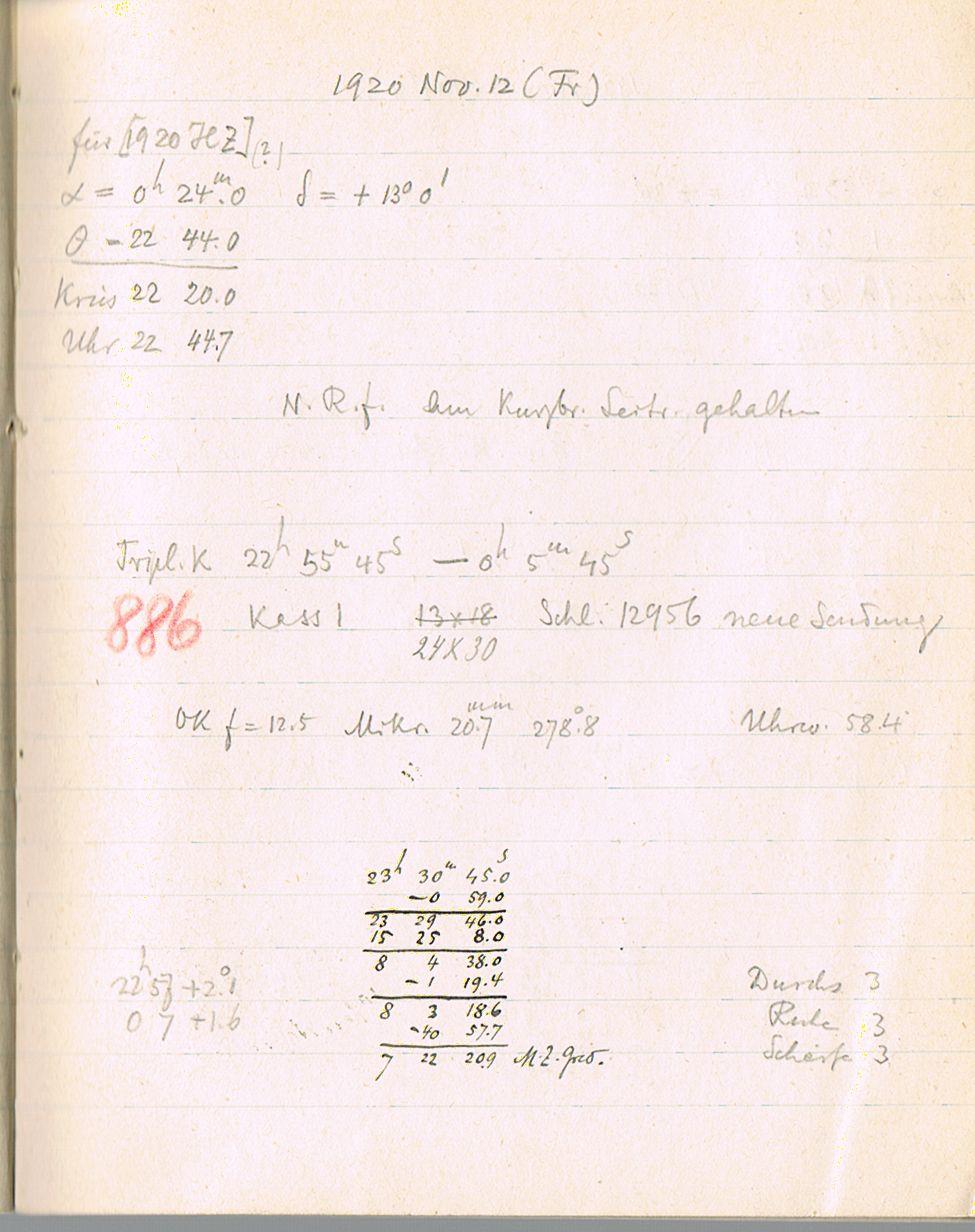 1920 Nov. 12 (Fr)
für [1920 HZ] (?)
α = 0h 24m.0 δ = + 13° 0'
θ - 22 44.0
Kreis 22 20.0
Uhr 22 44.7
N. R. f. Am Kurzbr. Seitr. gehalten
Tripl. K 22h 55m 45s — 0h 5m 45s
886 Kass 1 13×18 Schl. 12956 neue Sendung
24×30
OK f = 12.5 Mikr. 20.7mm 278°.8 Uhrw. 58.4
23h 30m 45.0s
-0 59.0
23 29 46.0
15 25 8.0
8 4 38.0
-1 19.4
8 3 18.6
-40 57.7
7 22 20.9 M.Z. Grw.
22h 57 +2°.1
0 7 +1.6
Durchs 3
Ruhe 3
Schärfe 3